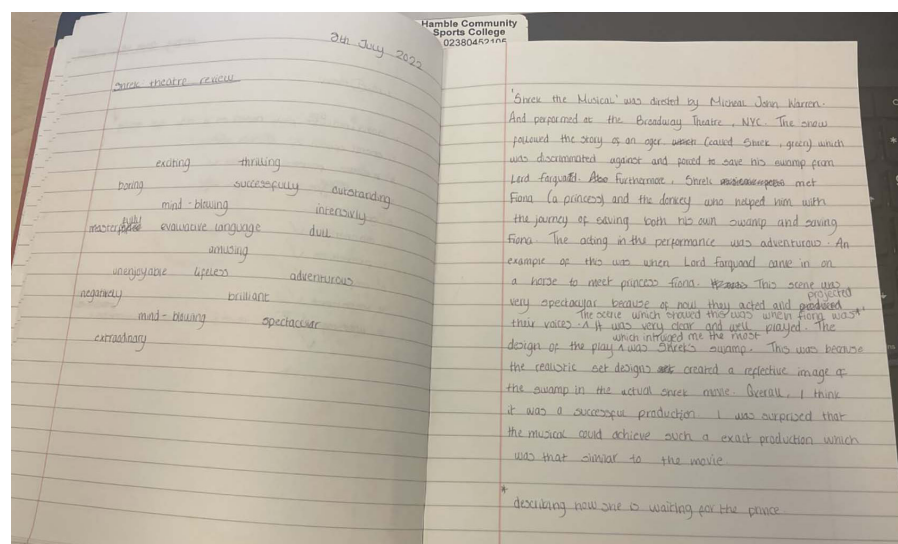 Hamble Community
Sports College
02380452105
5th July 2022
Shrek theatre review
exciting thrilling
boring successfully outstanding
mind-blowing intensivly
masterfully evaluative language dull
amusing
unenjoyable lifeless adventurous
negatively brilliant
mind-blowing spectacular
extraordinary
'Shrek the Musical' was directed by Micheal John Warren.
And performed at the Broadway Theatre, NYC. The show
followed the story of an oger (called Shrek, green) which
was discriminated against and forced to save his swamp from
Lord farquad. Furthermore, Shrek met
Fiona (a princess) and the donkey who helped him with
the journey of saving both his own swamp and saving
fiona. The acting in the performance was adventurous. An
example of this was when Lord farquad came in on
a horse to meet princess fiona. This scene was
very spectacular because of how they acted and projected
their voices. The scene which showed this was when fiona was*
It was very clear and well played. The
design of the play which intruiged me the most was Shrek's swamp. This was because
the realistic set designs created a reflective image of
the swamp in the actual shrek movie. Overall, I think
it was a successful production I was surprised that
the musical could achieve such a exact production which
was that similar to the movie
* describing how she is waiting for the prince